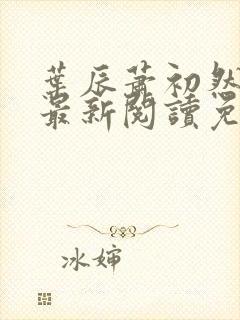 葉辰蕭初然
最新閱讀免
冰婶